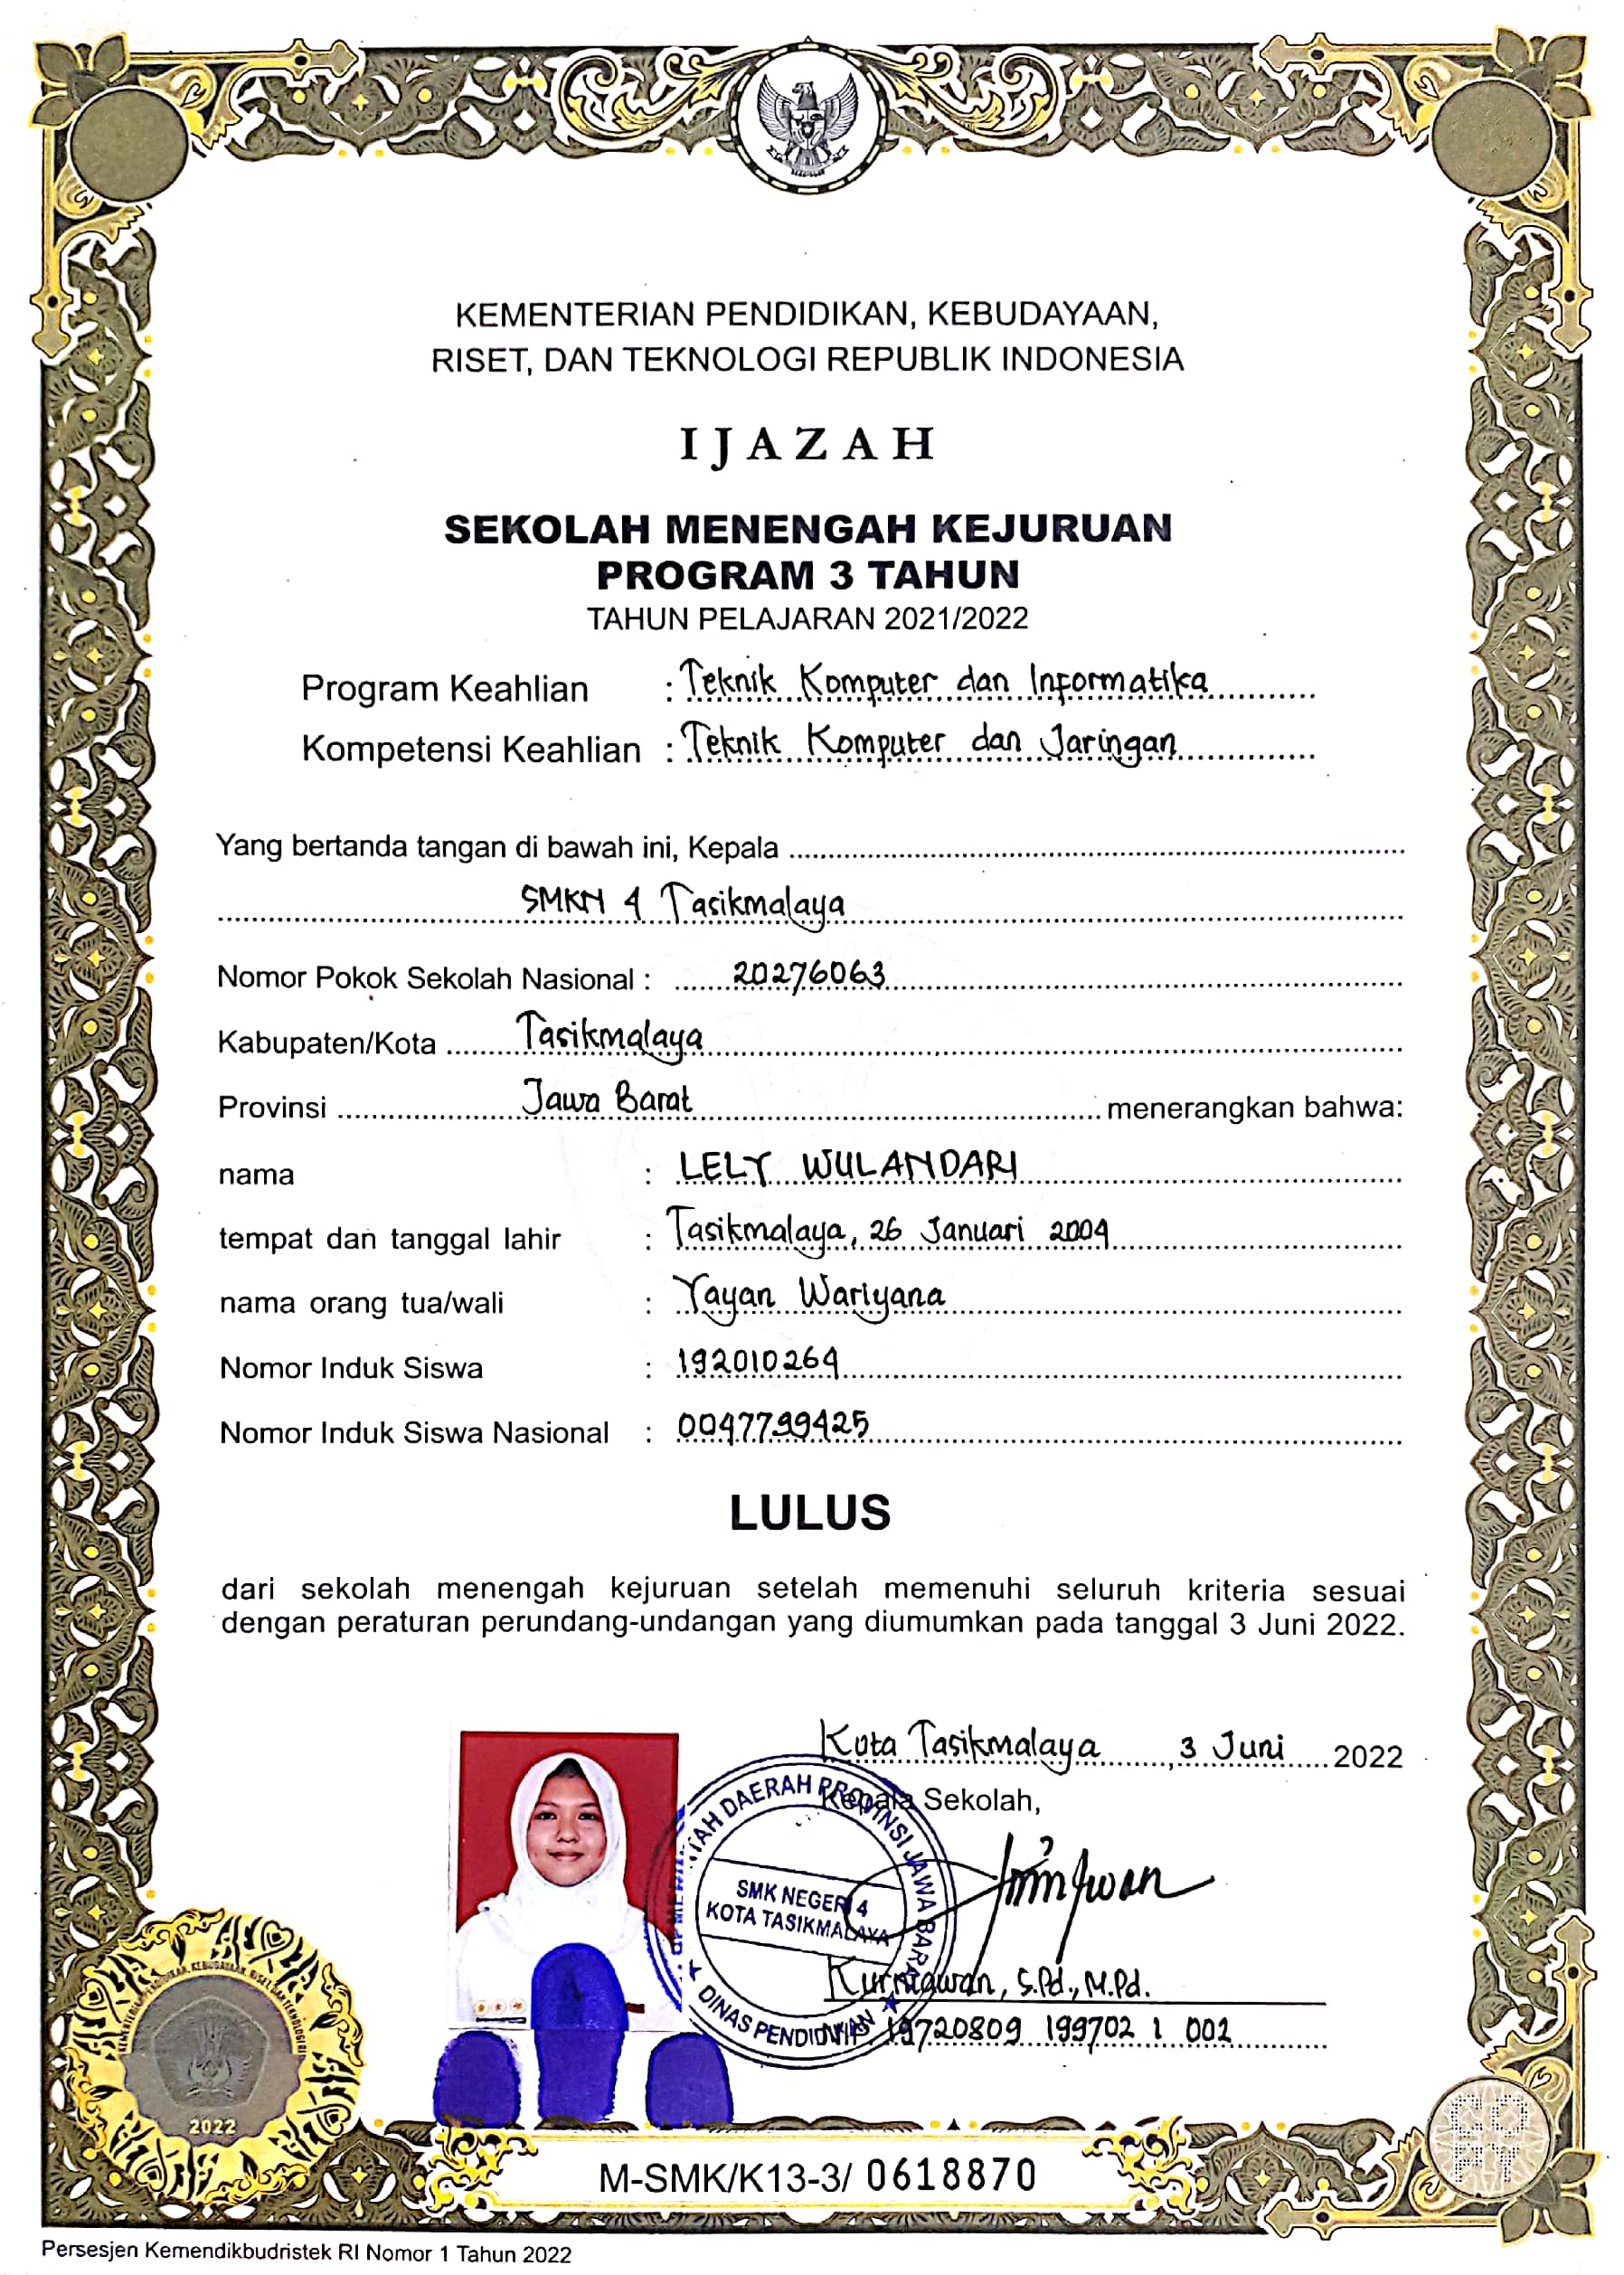 KEMENTERIAN PENDIDIKAN, KEBUDAYAAN,
RISET, DAN TEKNOLOGI REPUBLIK INDONESIA
IJAZAH
SEKOLAH MENENGAH KEJURUAN
PROGRAM 3 TAHUN
TAHUN PELAJARAN 2021/2022
Program Keahlian : Teknik Komputer dan Informatika
Kompetensi Keahlian : Teknik Komputer dan Jaringan
Yang bertanda tangan di bawah ini, Kepala
SMKN 4 Tasikmalaya
Nomor Pokok Sekolah Nasional : 20276063
Kabupaten/Kota Tasikmalaya
Provinsi Jawa Barat menerangkan bahwa:
nama : LELY WULANDARI
tempat dan tanggal lahir : Tasikmalaya, 26 Januari 2004
nama orang tua/wali : Yayan Wariyana
Nomor Induk Siswa : 192010264
Nomor Induk Siswa Nasional : 0047799425
LULUS
dari sekolah menengah kejuruan setelah memenuhi seluruh kriteria sesuai
dengan peraturan perundang-undangan yang diumumkan pada tanggal 3 Juni 2022.
Kota Tasikmalaya, 3 Juni 2022
Kepala Sekolah,
DAERAH PROVINSI JAWA BARAT
SMK NEGERI 4
KOTA TASIKMALAYA
DINAS PENDIDIKAN
Kurniawan, S.Pd., M.Pd.
NIP. 19720809 199702 1 002
2022
COPY
M-SMK/K13-3/ 0618870
Persesjen Kemendikbudristek RI Nomor 1 Tahun 2022